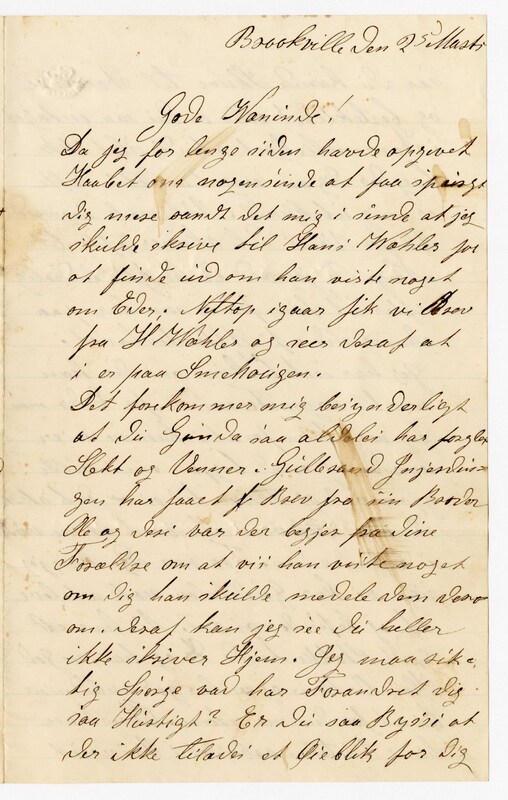 Brookville den 25 Marts
Gode Waninde!
Da jeg for lenge siden havde opgivet
Haabet om nogensinde at faa speurgt
dig mere randt det mig i sinde at jeg
skulde skrive til Hans Wæhler for
at finde ud om han viste noget
om Eder. Nettop igaar fik vi Brev
fra H Wæhler og seer deraf at
i er paa Smehougen.
Det forekommer mig besynderligt
at du Gunda saa aldeles har forglet
Slekt og Venner. Gulbrand Injerdin-
gen har faaet Brev fra sin Broder
Ole og desi var der begjer fra dine
Forældre om at vis han viste noget
om dig han skulde medele dem derom
om. deraf kan jeg see du heller
ikke skriver Hjem. Jeg maa rik-
tig Spørge vad har Forandret dig
saa Hastigt? Er du saa Byssi at
der ikke tilades et Øieblik for dig